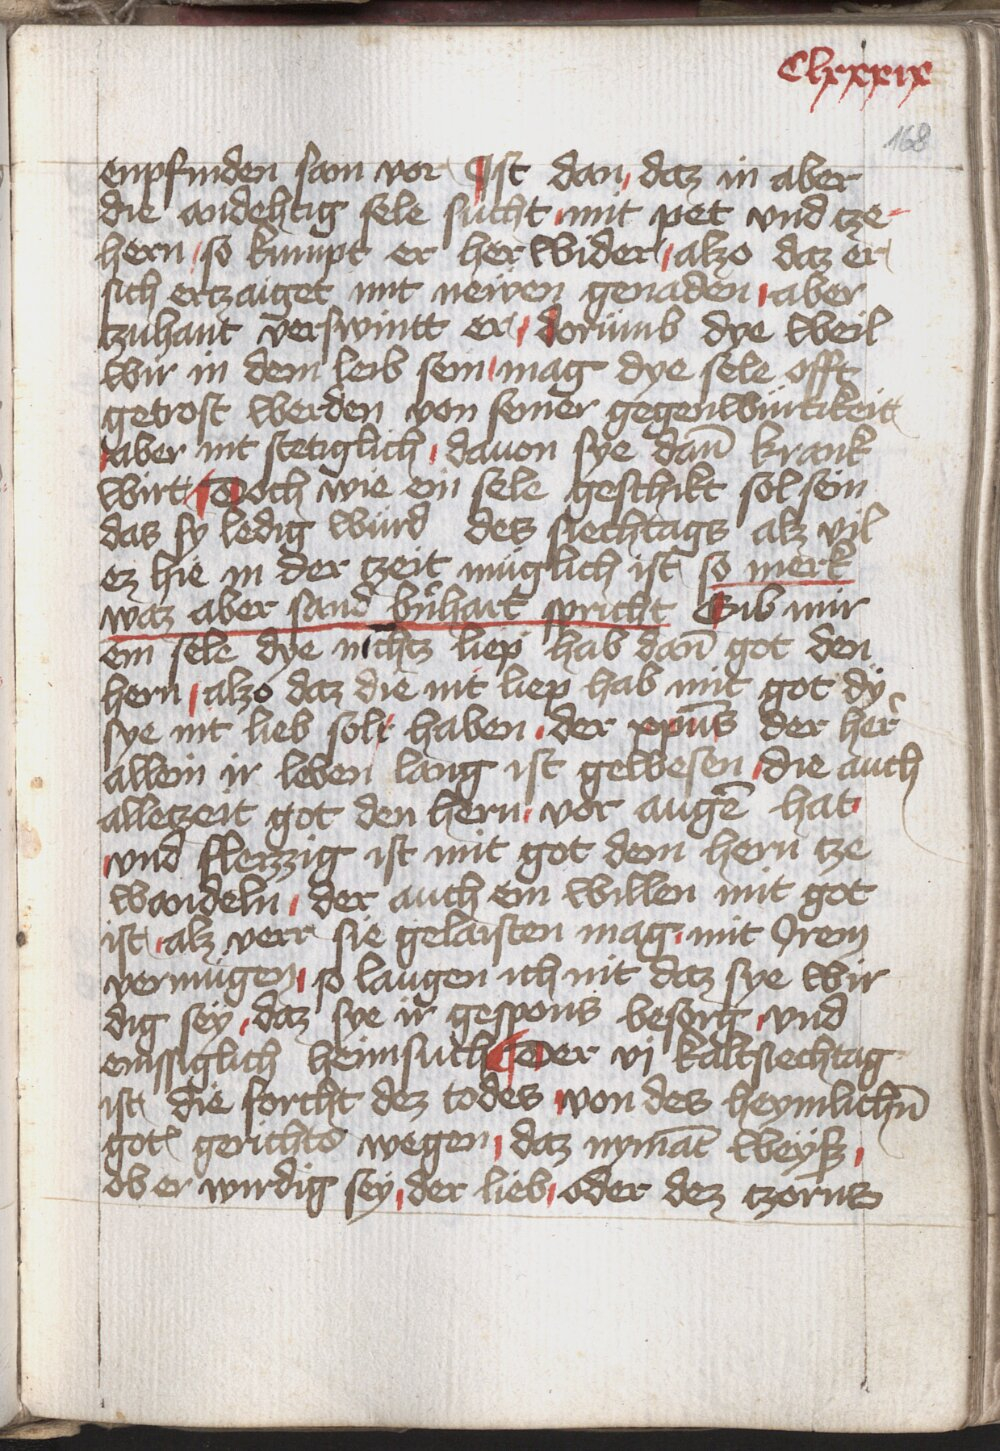 Clxxxix
168
enpfinden sam vor Ist dan, daz in aber
die andehtig sele sucht mit pet vnd tze-
hern, so kumpt er her wider, alzo daz er
sich ertzaiget mit neẅen genaden, aber
tzuhant verswintt er, dorümb dye weil
wir in dem leib sein, mag dye sele offt
getrost werden von seiner gegenwürtikeit
aber nit stetiglich, dauon sye dan̄ krank
wirt Doch wie ein sele geschikt sol sein
das sy ledig würd des siechtags alz vil
ez hie in der tzeit müglich ist so merk
waz aber sand bn̄hart spricht Gib mir
ein sele dye nichtz liep hab dan̄ got den
hern, alzo daz die nit liep hab mit got dÿ
sye nit lieb solt haben, der xpūs der her̄
allein ir leben lang ist gewesen, die auch
alletzeit got den hern, vor augē hat,
vnd fleizzig ist mit got dem hern tze
wandeln, der auch ein willen mit got
ist, alz verr sie gelaisten mag, mit Irem
vermügen, so laugen ich nit daz sye wir
dig seÿ, daz sye ir gespons besorg, vnd
emssiglich heimsuch Der vj kaltsiechtag
ist die forcht dez todes, von des heymlichn̄
gotz gerichtes wegen, daz nymāt weÿß,
ob er wirdig seÿ, der lieb, oder dez tzorns